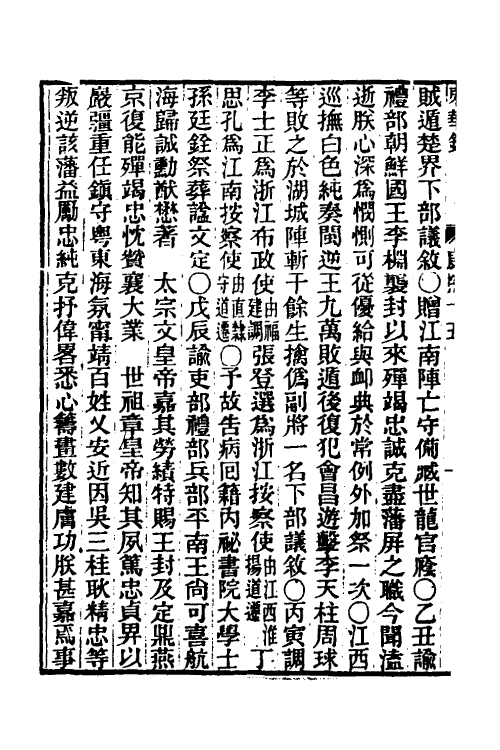 賊遁楚界下部議敘○贈江南陣亡守備臧世龍官廕○乙丑諭
禮部朝鮮國王李棩襲封以來殫竭忠誠克盡藩屏之職今聞溘
逝朕心深爲憫惻可從優給與卹典於常例外加祭一次○江西
巡撫白色純奏閩逆王九萬敗遁後復犯會昌遊擊李天柱周球
等敗之於湖城陣斬千餘生擒僞副將一名下部議敘○丙寅調
李士正爲浙江布政使由福建調張登選爲浙江按察使由江西淮揚道遷丁
思孔爲江南按察使由直隸守道遷○予故吿病回籍內祕書院大學士
孫廷銓祭葬諡文定○戊辰諭吏部禮部兵部平南王尙可喜航
海歸誠勳猷懋著　太宗文皇帝嘉其勞績特賜王封及定鼎燕
京復能殫竭忠忱贊襄大業　世祖章皇帝知其夙篤忠貞畀以
嚴疆重任鎭守粵東海氛甯靖百姓乂安近因吳三桂耿精忠等
叛逆該藩益勵忠純克抒偉畧悉心籌畫數建膚功朕甚嘉焉事